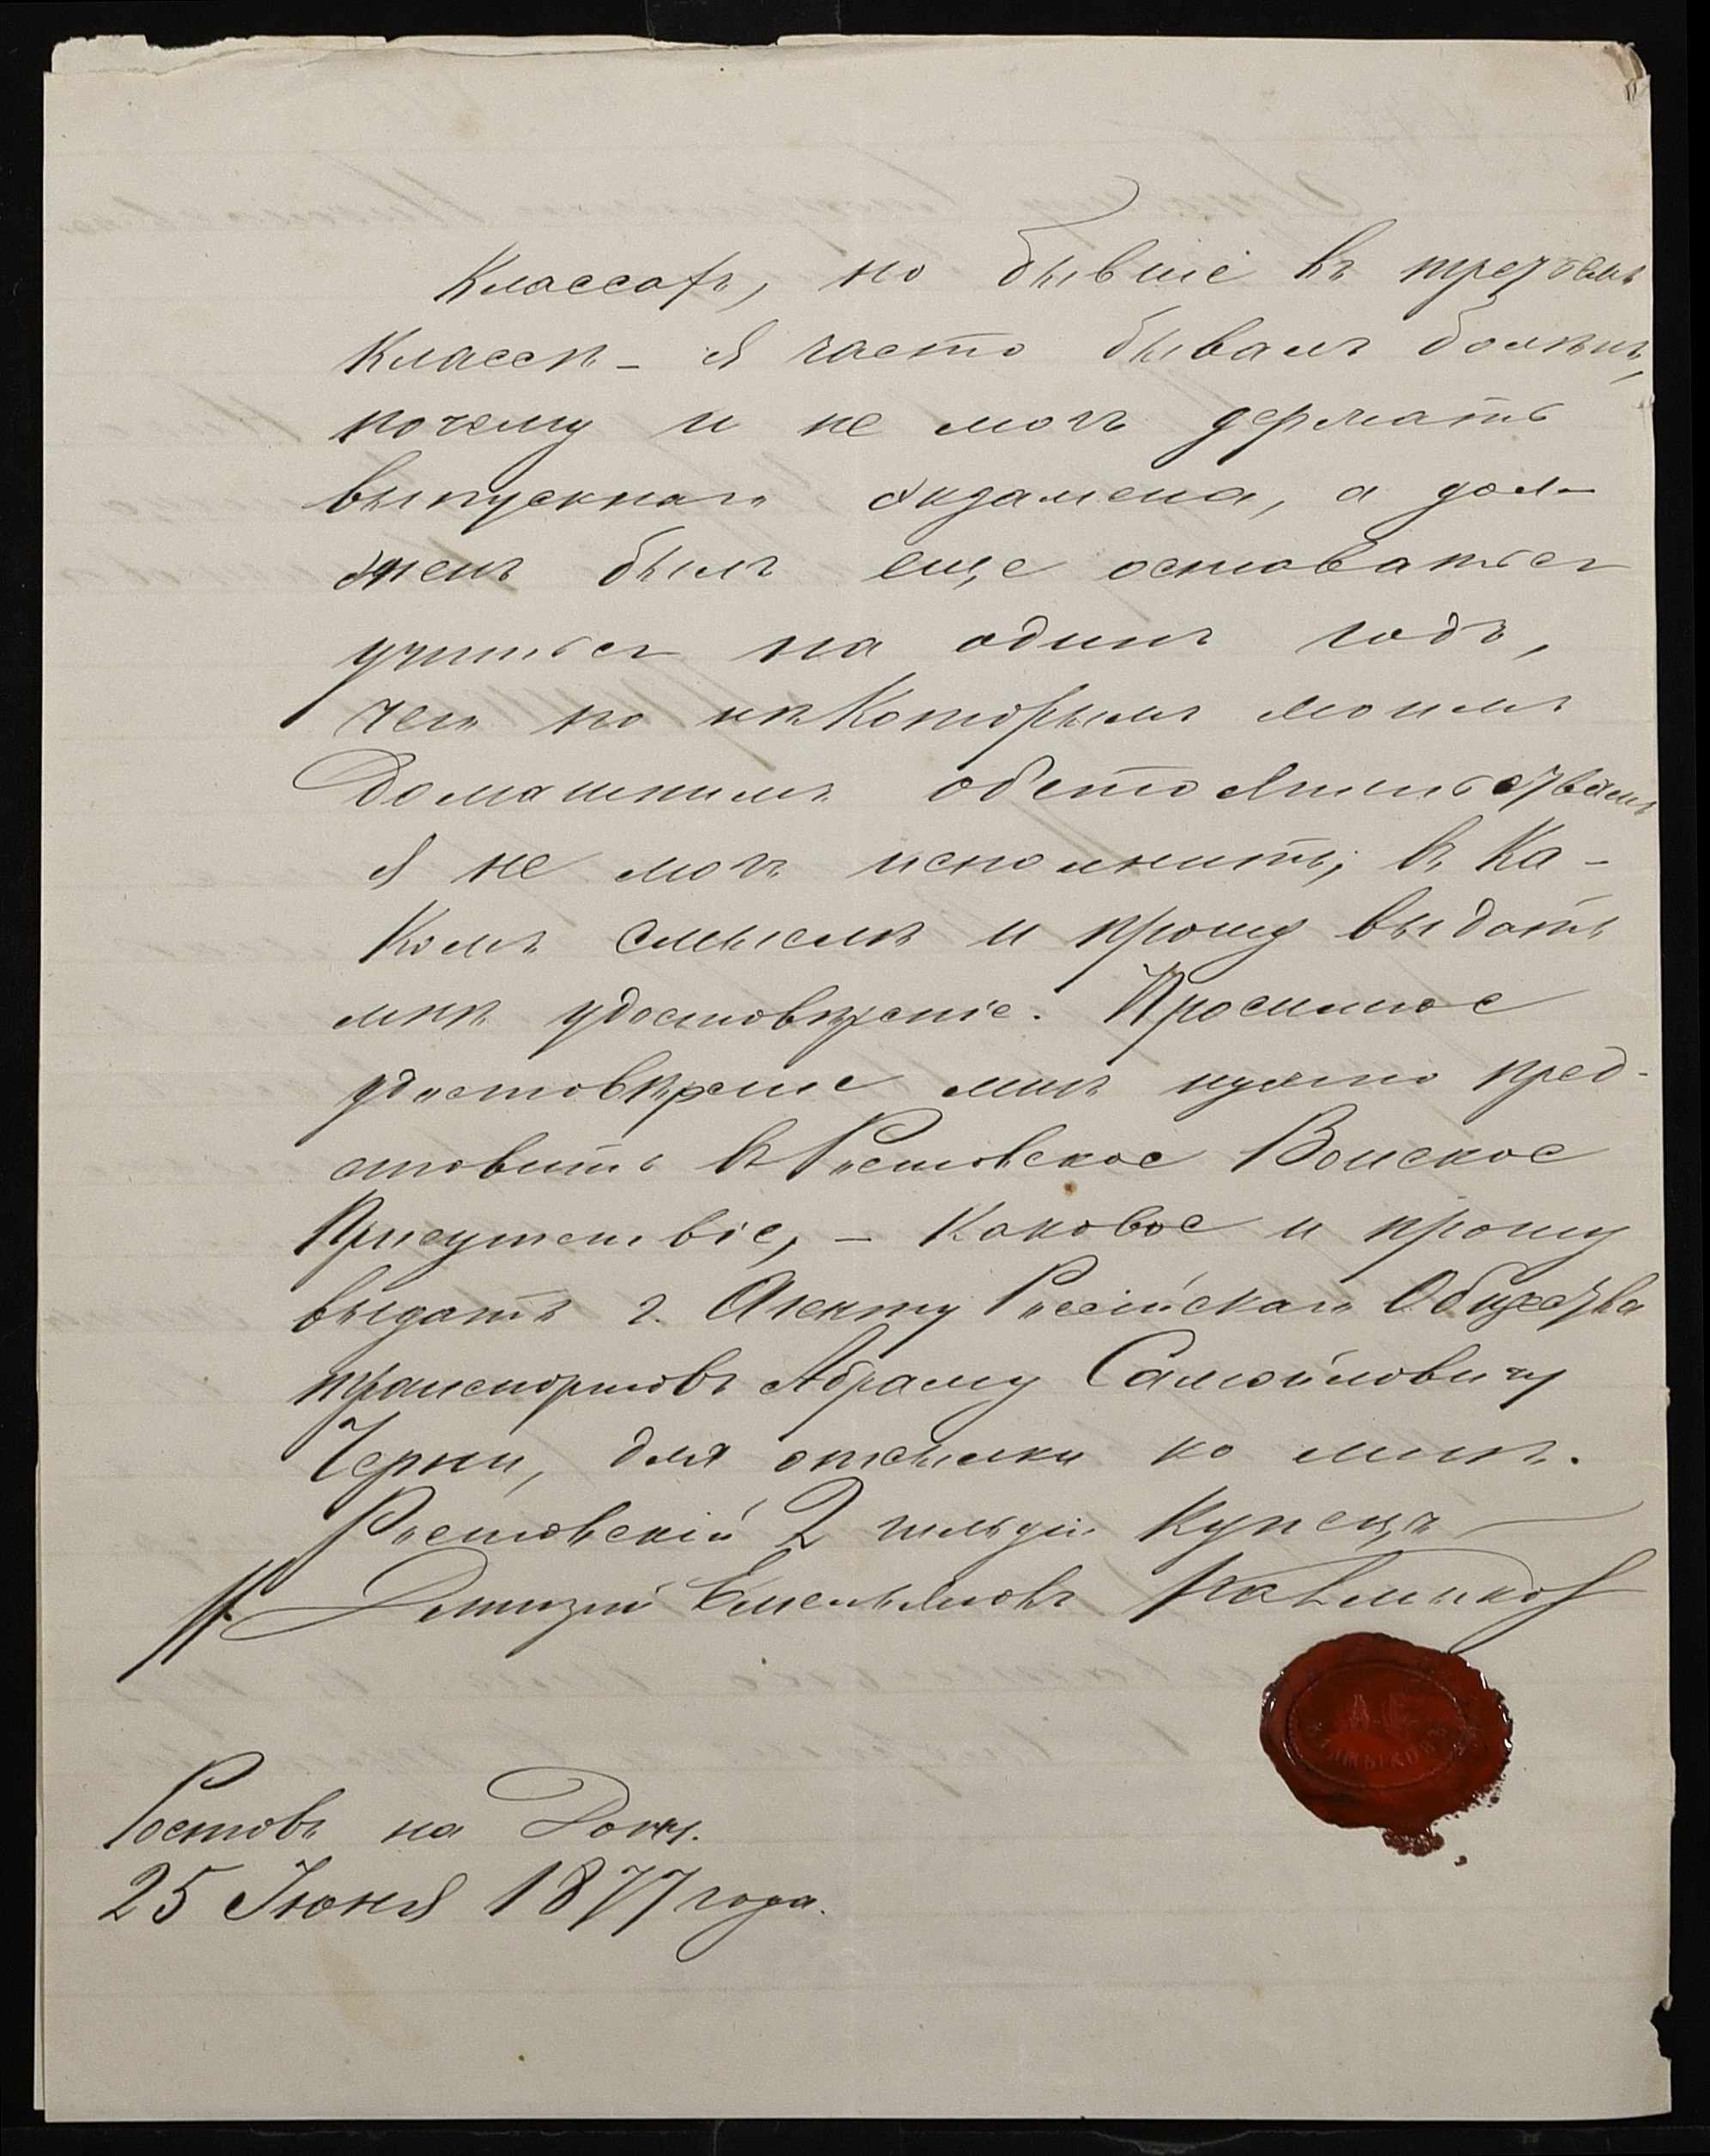 Классахъ, но бывше въ третьемъ
Классѣ – я часто бывалъ боленъ,
почему и не могъ держать
выпускнаго экзамена, а дол-
женъ былъ еще оставаться
учиться на одинъ годъ,
чего по нѣкоторымъ моимъ
Домашнимъ обстоятельствамъ
я не могъ исполнить; въ Ка-
комъ смыслѣ и прошу выдать
мнѣ удостовѣреніе. Просимое
удостовѣрение мнѣ нужно пред-
ставить въ Ростовское Воиское
Присутствіе, – каковое и прошу
выдать г. Агенту Россійскаго Общества
транспортовъ Абраму Самойловичу
Черни, для отсылки ко мнѣ.
Ростовскій 2 гильдіи Купецъ
Дмитрій Емельяновъ Калмыковъ
А.Е.
КАЛМЫКОВЪ
Ростовъ на Дону.
25 Июня 1877 года.